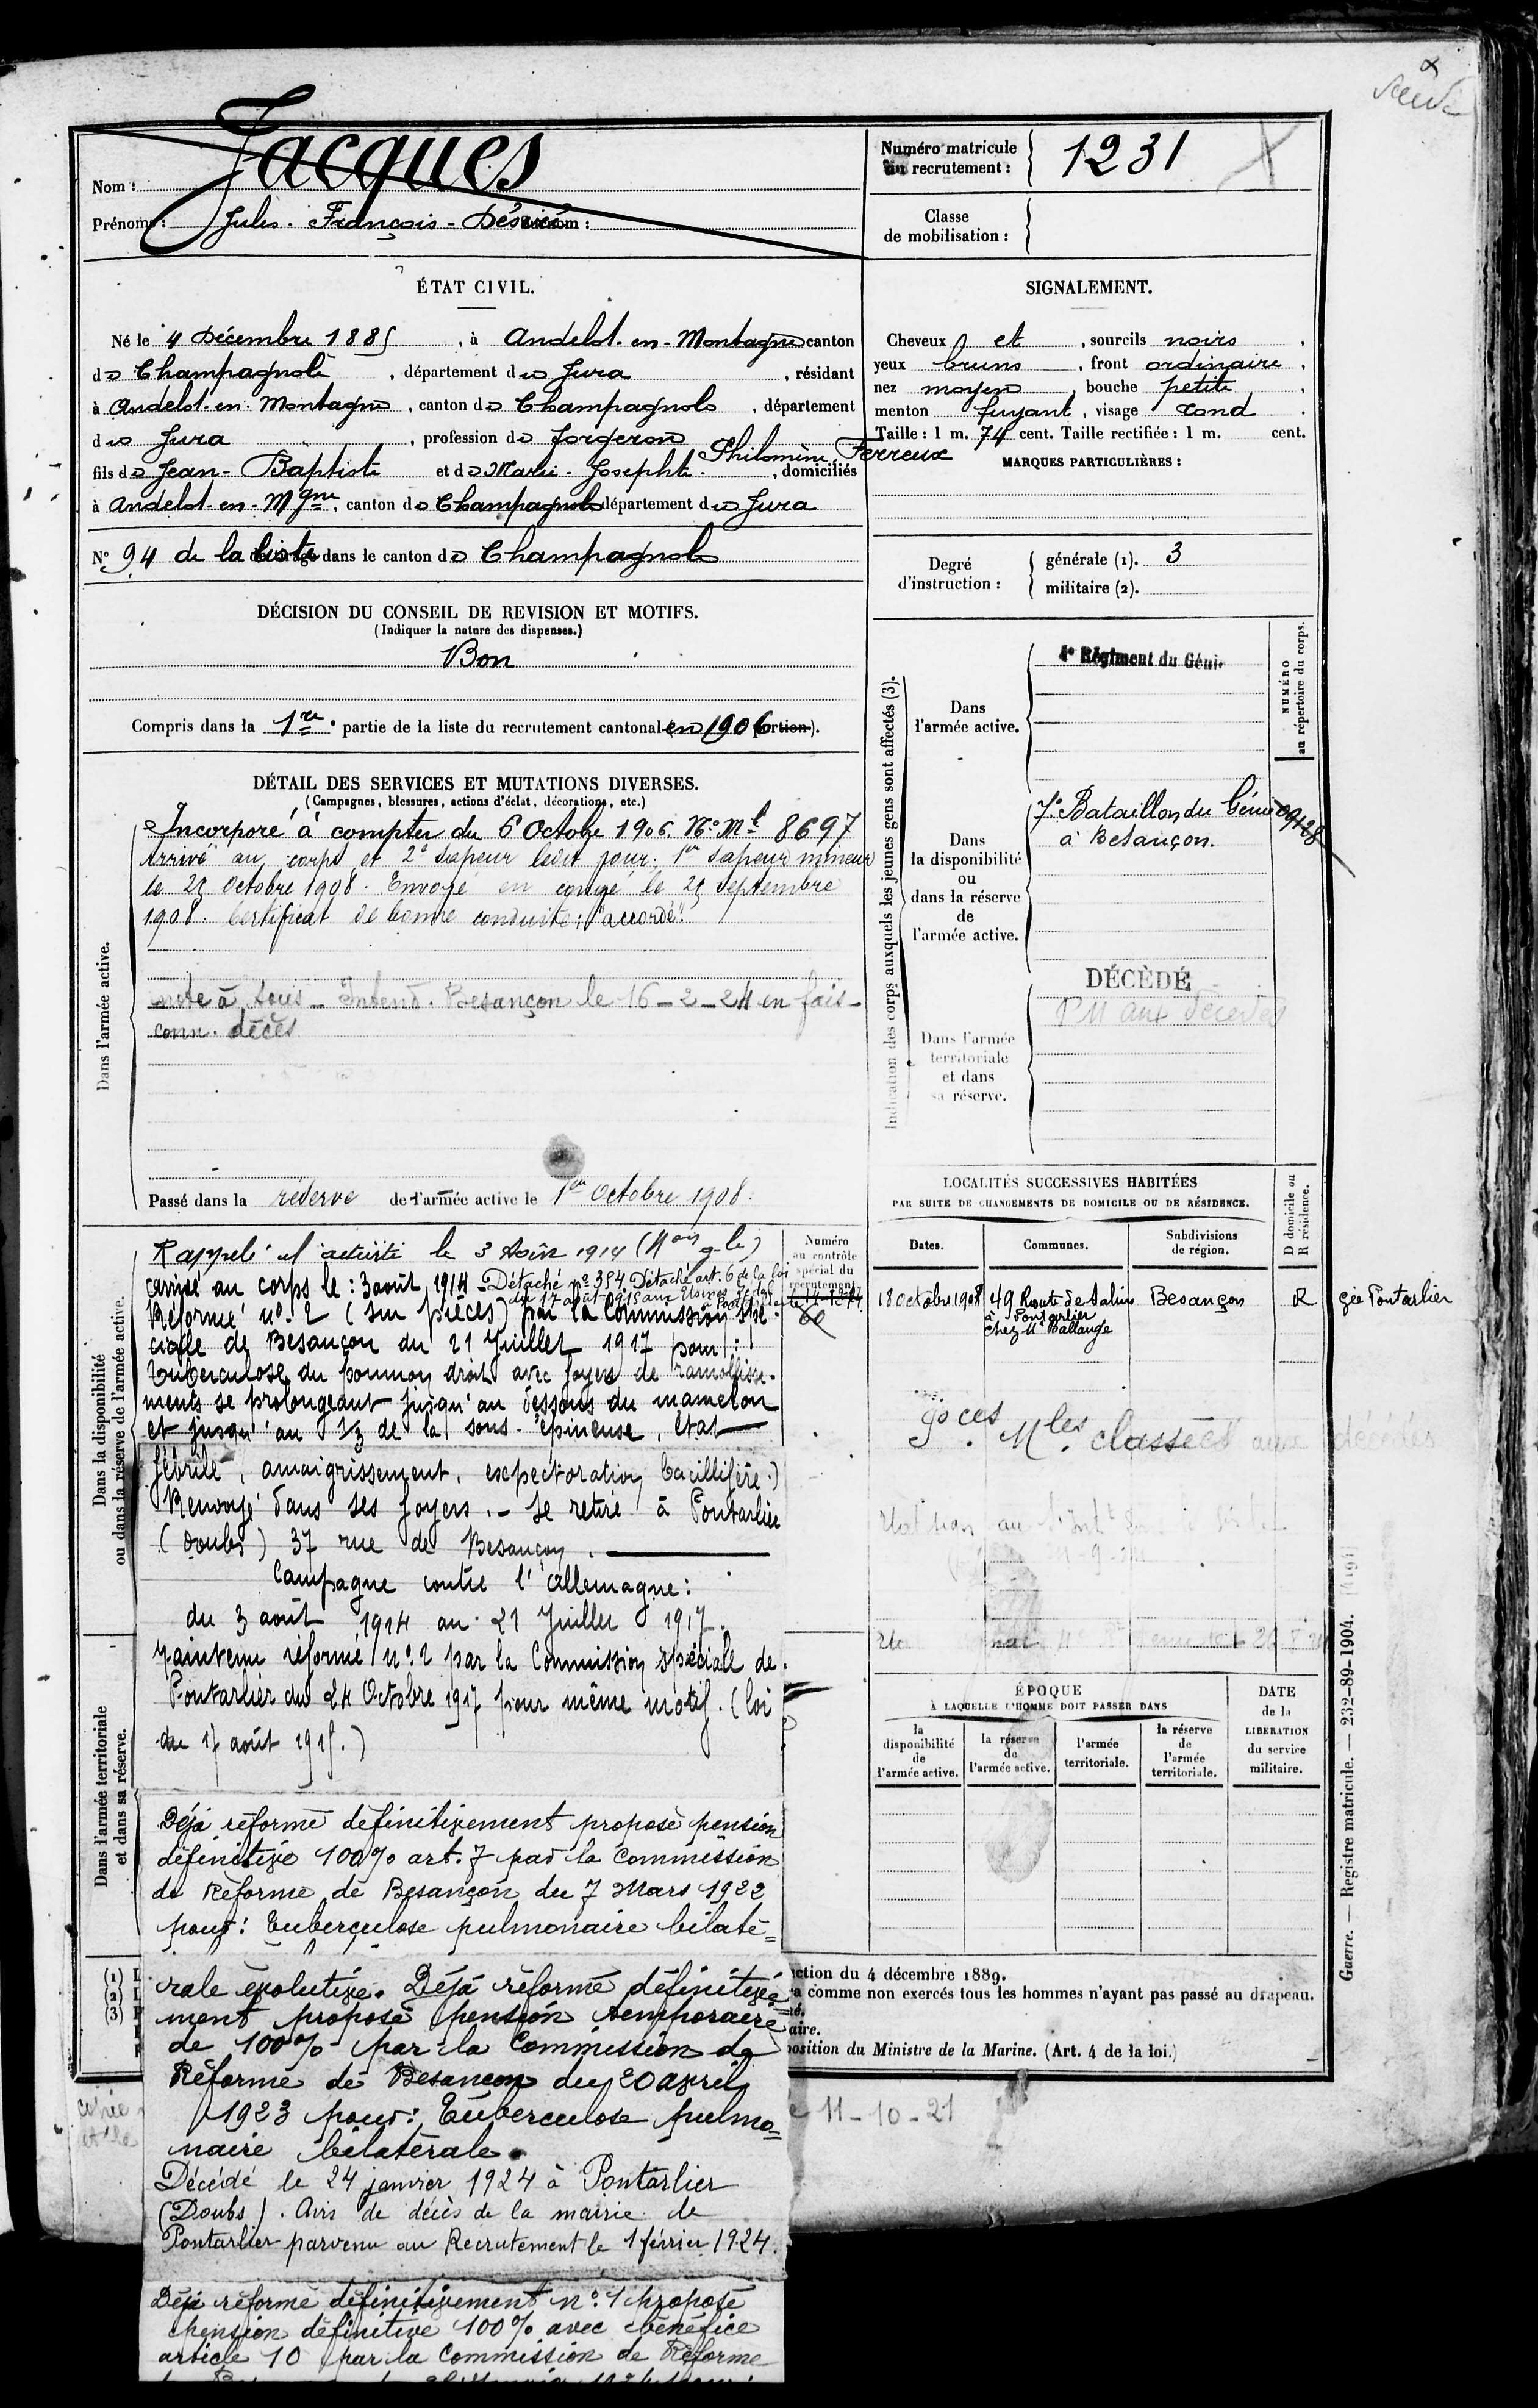 Nom : Jacques
Prénoms : Jules - François - Désiré Surnom :
Numéro matricule
du recrutement : 1231
Classe
de mobilisation :
ÉTAT CIVIL.
Né le 4 Décembre 1885, à Andelot-en-Montagne canton
de Champagnole, département du Jura, résidant
à Andelot-en-Montagne, canton de Champagnole, département
du Jura, profession de forgeron
fils de Jean-Baptiste et de Marie-Josephte-Philomène Ferreux, domiciliés
à Andelot-en-Mgne, canton de Champagnole département du Jura
N° 94 de la liste dans le canton de Champagnole
DÉCISION DU CONSEIL DE REVISION ET MOTIFS.
(Indiquer la nature des dispenses.)
Bon
Compris dans la 1re partie de la liste du recrutement cantonal en 1906 (ortion).
DÉTAIL DES SERVICES ET MUTATIONS DIVERSES.
(Campagnes, blessures, actions d'éclat, décorations, etc.)
Dans l'armée active.
Incorporé à compter du 6 Octobre 1906. N° Ml 8697
Arrivé au corps et 2e sapeur ledit jour. 1er sapeur mineur
le 25 Octobre 1908. Envoyé en congé le 25 septembre
1908. Certificat de bonne conduite : "accordé".
note à Sous-Intend. Besançon le 16-2-24 en fais-
conn. décès
Passé dans la réserve de l'armée active le 1er Octobre 1908.
Dans la disponibilité
ou dans la réserve de l'armée active.
Numéro
au contrôle
spécial du
recrutement
60
Rappelé à l'activité le 3 Août 1914 (Mon g-le)
arrivé au corps le : 3 août 1914 - Détaché n° 354. Détaché art. 6 de la loi
du 17 août 1915 aux Usines
Réformé n° 2 (sur pièces) par la Commission spé-
ciale de Besançon du 21 Juillet 1917 pour :
tuberculose du poumon droit avec foyers de ramollisse-
ments se prolongeant jusqu'au dessous du mamelon
et jusqu'au 1/3 de la sous-épineuse, état
fébrile, amaigrissement, expectoration bacillifère.)
Renvoyé dans ses foyers. - Se retire à Pontarlier
(Doubs) 37 rue de Besançon.
Campagne contre l'Allemagne :
du 3 août 1914 au 21 Juillet 1917.
Maintenu réformé n° 2 par la Commission spéciale de
Pontarlier du 24 Octobre 1917 pour même motif. (loi
du 17 août 1915.)
Dans l'armée territoriale
et dans sa réserve.
Déjà réformé définitivement proposé pension
définitive 100% art. 7 par la Commission
de Réforme de Besançon du 7 Mars 1922
pour : Tuberculose pulmonaire bilaté=
rale évolutive. Déjà réformé définitive=
ment proposé pension temporaire
de 100% par la Commission de
Réforme de Besançon du 20 avril
1923 pour : Tuberculose pulmo=
naire bilatérale.
Décédé le 24 janvier 1924 à Pontarlier
(Doubs). Avis de décès de la mairie de
Pontarlier parvenu au Recrutement le 1 février 1924.
Déjà réformé définitivement n° 1 proposé
pension définitive 100% avec bénéfice
article 10 par la Commission de Réforme
SIGNALEMENT.
Cheveux et, sourcils noirs,
yeux bruns, front ordinaire,
nez moyen, bouche petite,
menton fuyant, visage rond.
Taille : 1 m. 74 cent. Taille rectifiée : 1 m. cent.
MARQUES PARTICULIÈRES :
Degré
d'instruction :
générale (1). 3
militaire (2).
Indication des corps auxquels les jeunes gens sont affectés (3).
NUMÉRO
au répertoire du corps.
Dans
l'armée active.
4e Régiment du Génie
Dans
la disponibilité
ou
dans la réserve
de
l'armée active.
7e Bataillon du Génie
à Besançon.
09128
DÉCÉDÉ
PM aux Décédés
Dans l'armée
territoriale
et dans
sa réserve.
LOCALITÉS SUCCESSIVES HABITÉES
PAR SUITE DE CHANGEMENTS DE DOMICILE OU DE RÉSIDENCE.
D domicile ou
R résidence.
Dates. Communes. Subdivisions
de région.
18 Octobre 1908 49 Route de Salins Besançon R Gie Pontarlier
à Pontarlier
chez Mr Ballange
Pces Mles classées aux décédés
ÉPOQUE
À LAQUELLE L'HOMME DOIT PASSER DANS
la
disponibilité
de
l'armée active.
la réserve
de
l'armée active.
l'armée
territoriale.
la réserve
de
l'armée
territoriale.
DATE
de la
LIBERATION
du service
militaire.
(1)
(2)
(3)
ction du 4 décembre 1889.
a comme non exercés tous les hommes n'ayant pas passé au drapeau.
aire.
position du Ministre de la Marine. (Art. 4 de la loi.)
11-10-21
Guerre. — Registre matricule. — 232-89-1904.